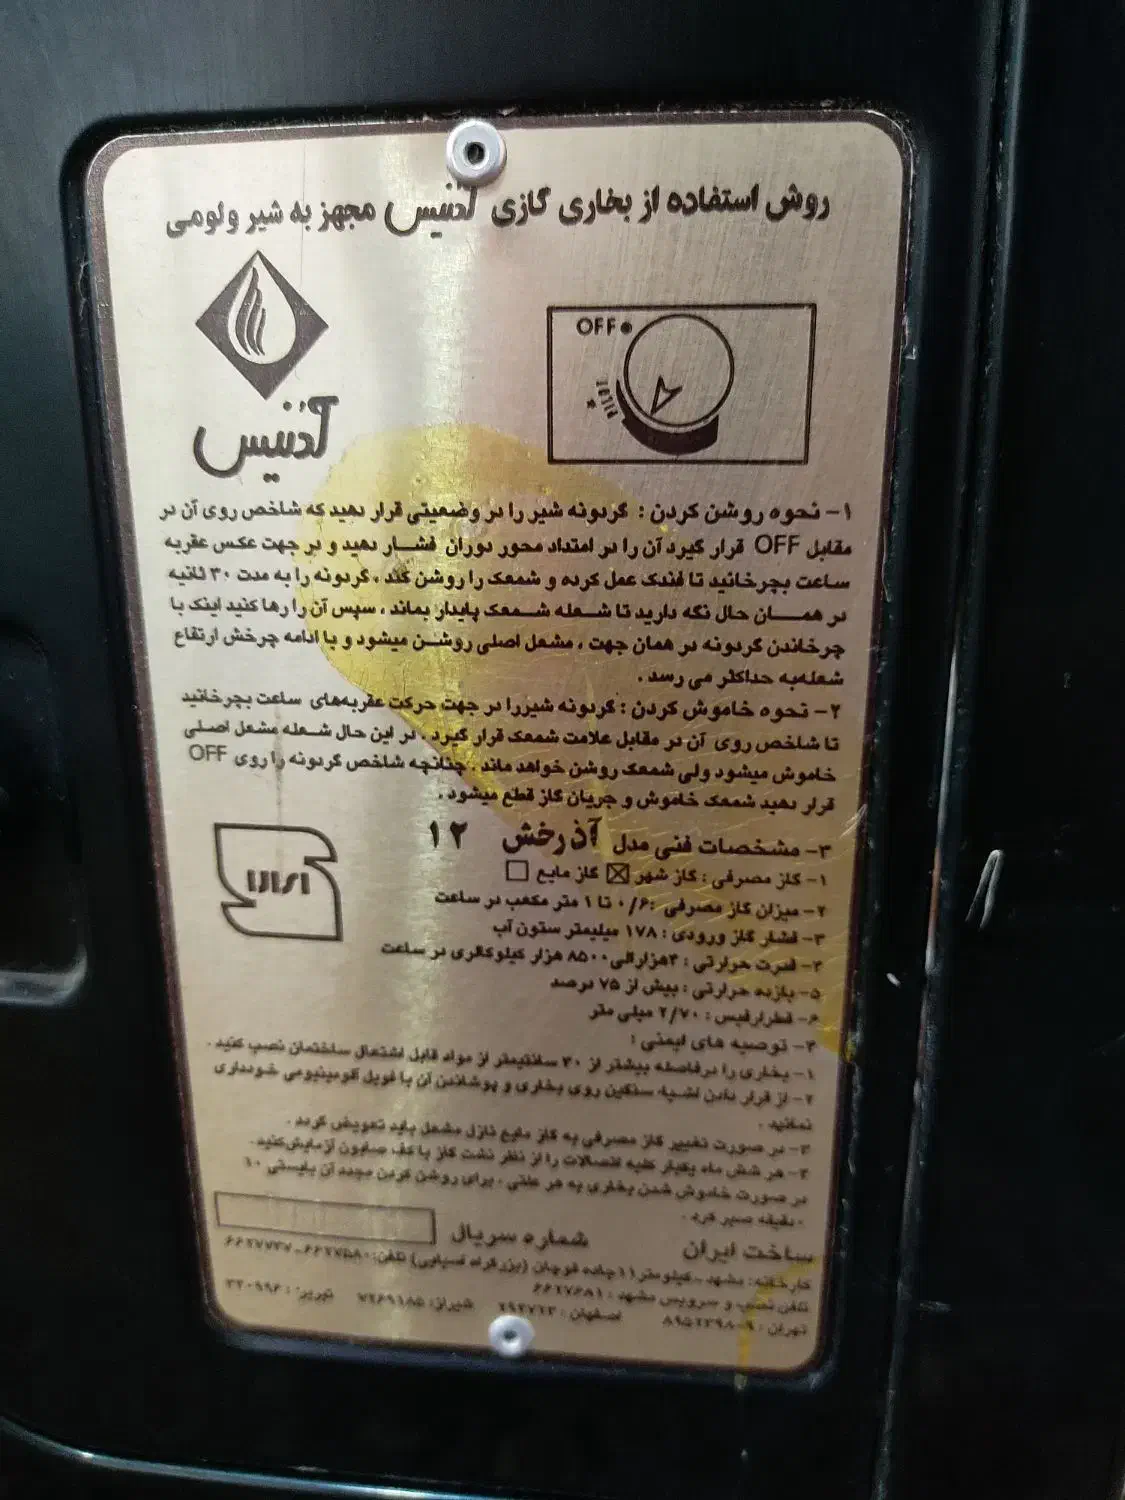 روش استفاده از بخاری گازی آدنیس مجهز به شیر ولومی
OFF
PILOT
آدنیس
۱- نحوه روشن کردن : گردونه شیر را در وضعیتی قرار دهید که شاخص روی آن در
مقابل OFF قرار گیرد آن را در امتداد محور دوران فشار دهید و در جهت عکس عقربه
ساعت بچرخانید تا فندک عمل کرده و شمعک را روشن کند ، گردونه را به مدت ۳۰ ثانیه
در همان حال نگه دارید تا شعله شمعک پایدار بماند ، سپس آن را رها کنید اینک با
چرخاندن گردونه در همان جهت ، مشعل اصلی روشن میشود و با ادامه چرخش ارتفاع
شعله به حداکثر می رسد .
۲- نحوه خاموش کردن : گردونه شیررا در جهت حرکت عقربه‌های ساعت بچرخانید
تا شاخص روی آن در مقابل علامت شمعک قرار گیرد ، در این حال شعله مشعل اصلی
خاموش میشود ولی شمعک روشن خواهد ماند . چنانچه شاخص گردونه را روی OFF
قرار دهید شمعک خاموش و جریان گاز قطع میشود .
۳- مشخصات فنی مدل آذرخش ۱۲
۱- گاز مصرفی : گاز شهر ☒ گاز مایع ☐
۲- میزان گاز مصرفی : ۰/۶ تا ۱ متر مکعب در ساعت
۳- فشار گاز ورودی : ۱۷۸ میلیمتر ستون آب
۴- قدرت حرارتی : ۴هزارالی ۸۵۰۰ هزار کیلوکالری در ساعت
۵- بازده حرارتی : بیش از ۷۵ درصد
۶- قطراریفیس : ۲/۷۰ میلی متر
۴- توصیه های ایمنی :
۱- بخاری را درفاصله بیشتر از ۳۰ سانتیمتر از مواد قابل اشتعال ساختمان نصب کنید .
۲- از قرار دادن اشیاء سنگین روی بخاری و پوشاندن آن با فویل آلومینیومی خودداری
نمائید .
۳- در صورت تغییر گاز مصرفی به گاز مایع نازل مشعل باید تعویض گردد .
۴- هر شش ماه یکبار کلیه اتصالات را از نظر نشت گاز با کف صابون آزمایش کنید .
در صورت خاموش شدن بخاری به هر علتی ، برای روشن کردن مجدد آن بایستی ۱۰
دقیقه صبر کرد .
ساخت ایران شماره سریال
کارخانه: مشهد - کیلومتر۱۱جاده قوچان (بزرگراه آسیایی) تلفن:
تلفن نصب و سرویس مشهد : ۶۶۲۷۶۸۱
تهران : اصفهان : شیراز: تبریز: